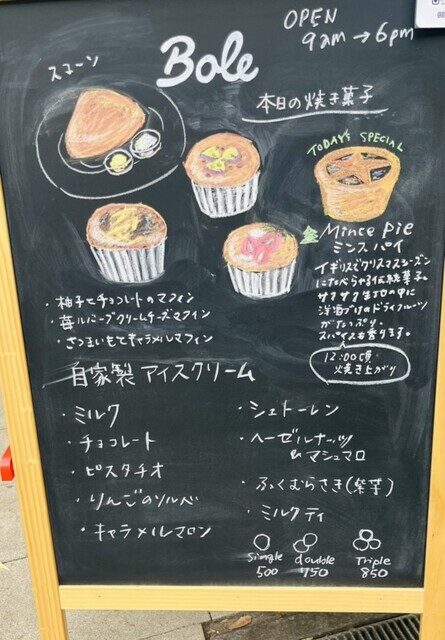 OPEN
9am→6pm
Bole
スコーン
本日の焼き菓子
TODAY'S SPECIAL
Mince pie
ミンスパイ
イギリスでクリスマスシーズン
にたべられる伝統菓子。
サクサク生地の中に
洋酒づけのドライフルーツ
がたっぷり。
スパイスも香ります。
12:00頃
焼き上がり
・柚子とチョコレートのマフィン
・苺ルバーブクリームチーズマフィン
・さつまいもとキャラメルマフィン
自家製 アイスクリーム
・ミルク
・チョコレート
・ピスタチオ
・りんごのソルベ
・キャラメルマロン
・シュトーレン
・ヘーゼルナッツ
& マシュマロ
・ふくむらさき(紫芋)
・ミルクティ
Single
500
double
750
Triple
850